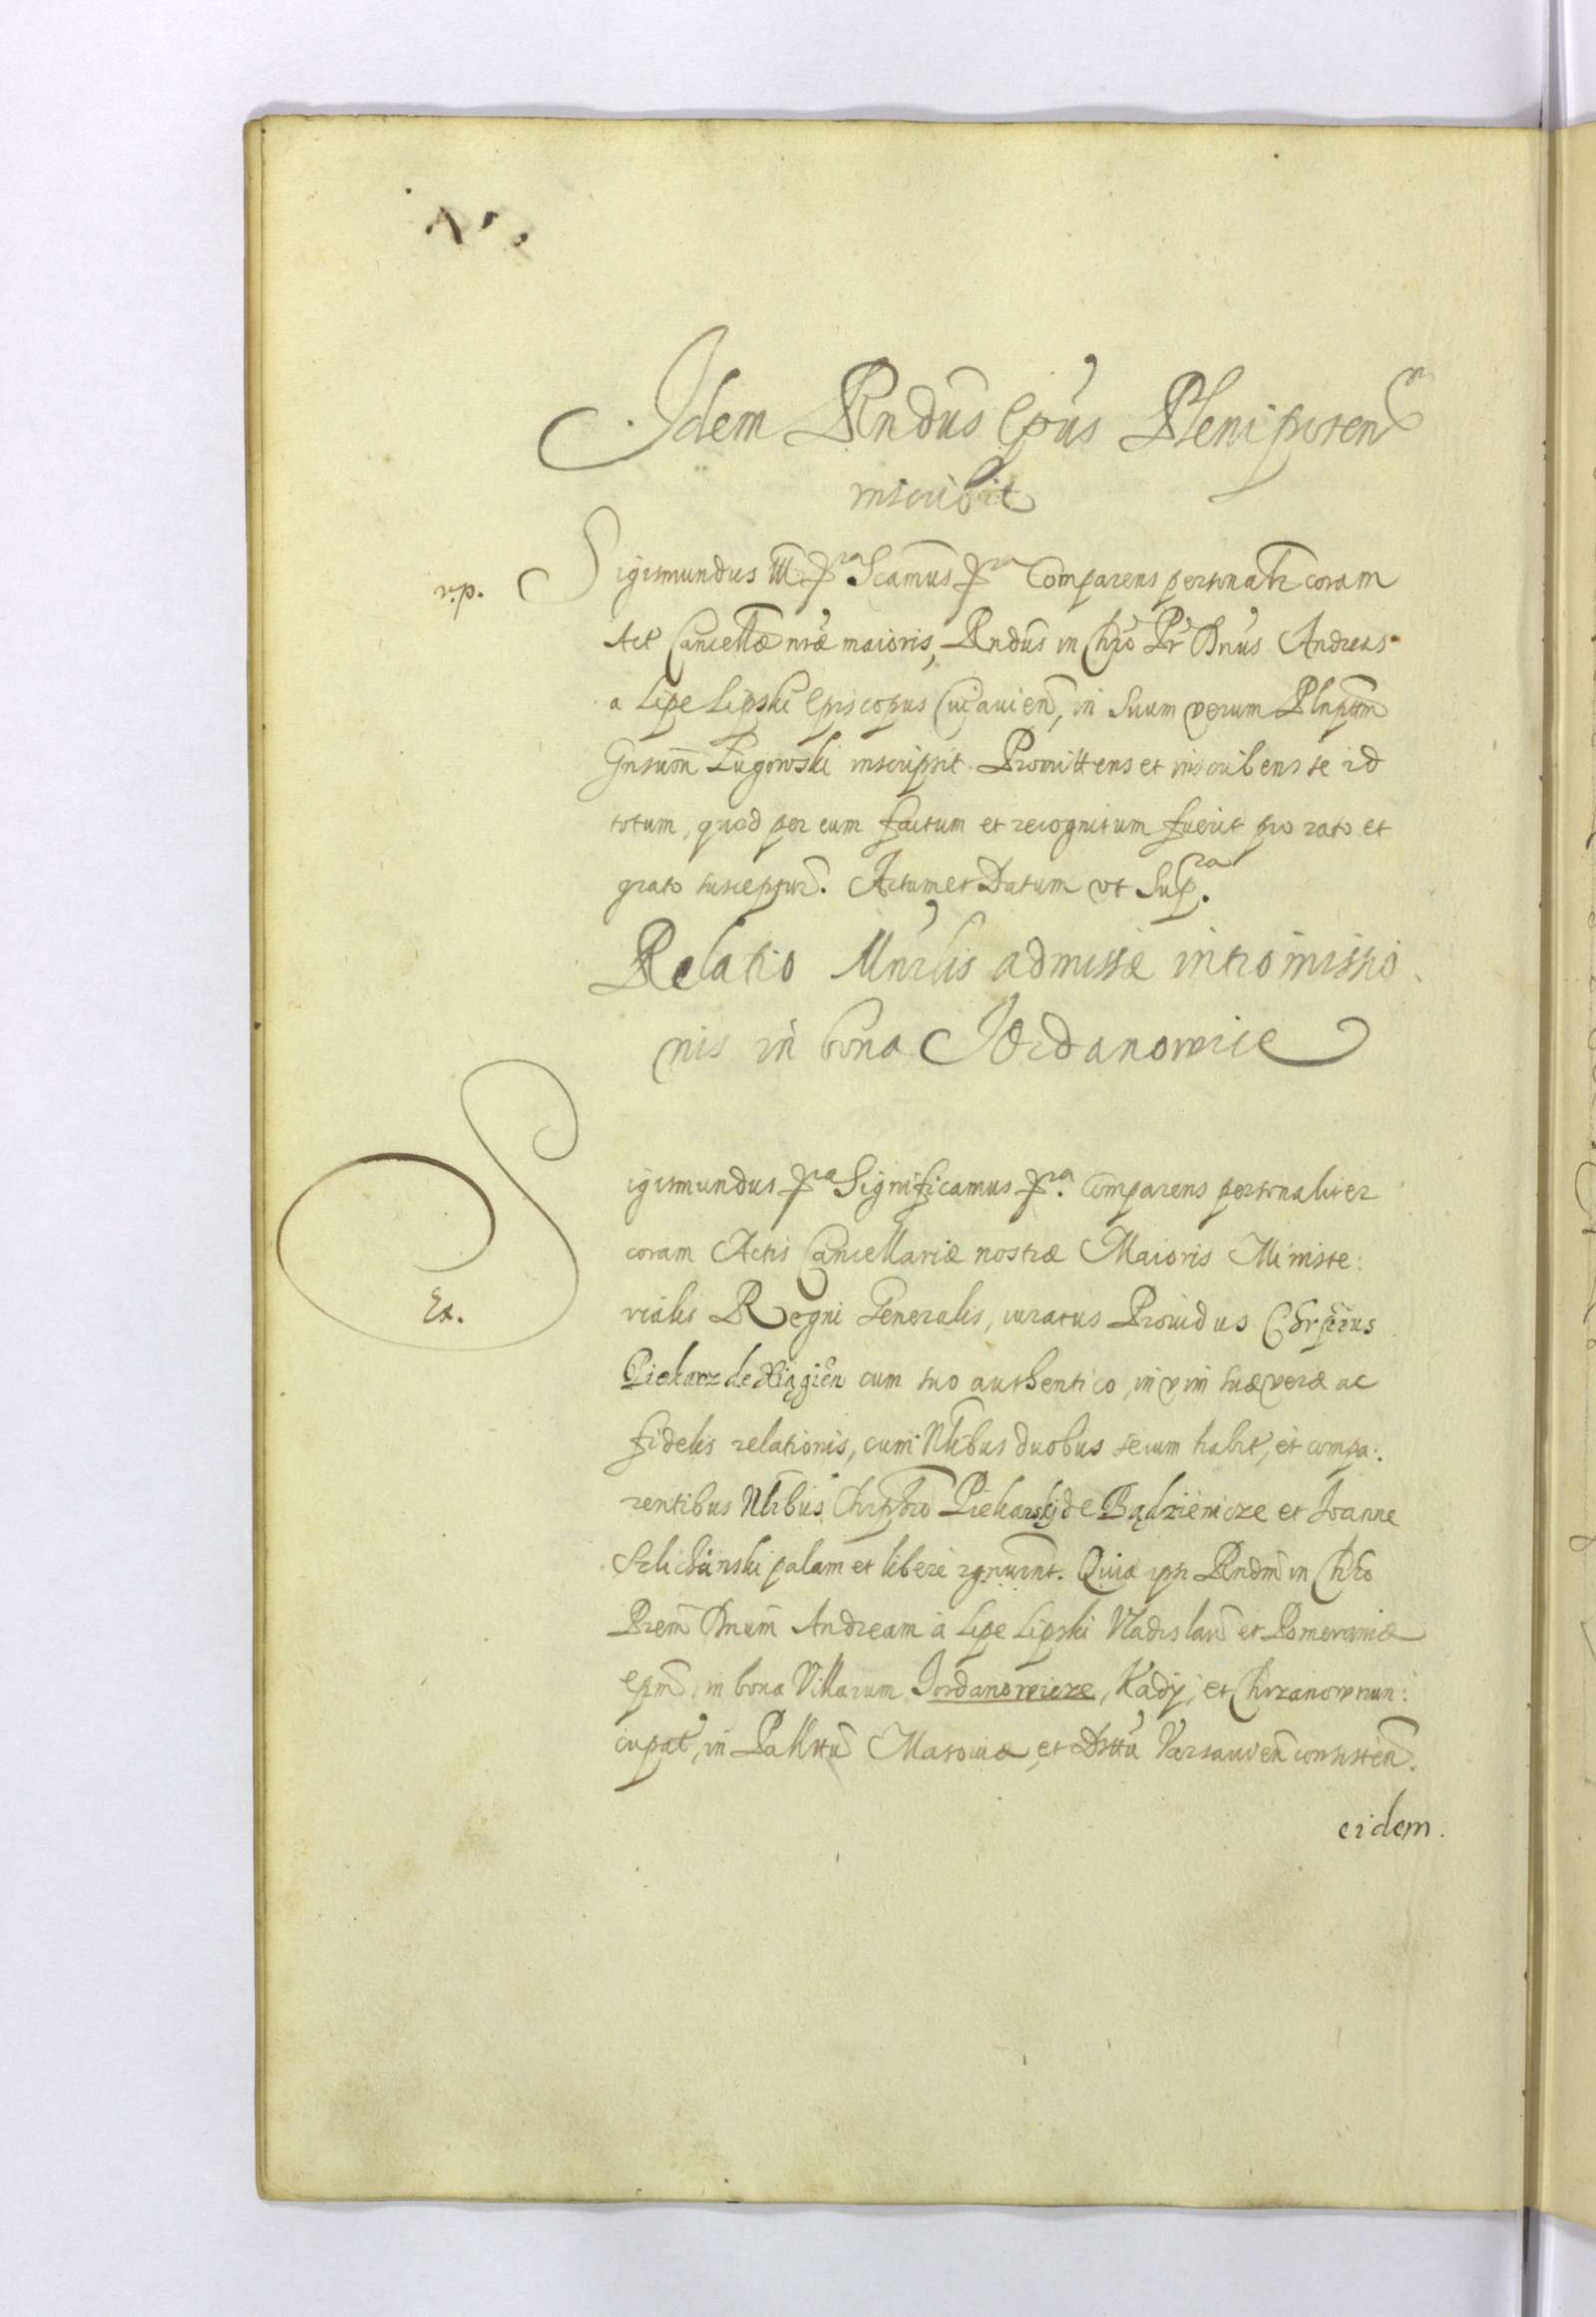 Idem Rndus Epus Plenipoten
inscribit
v.p.
Sigismundus III. pra Scamus pra Comparens personalr coram
Act Cancellæ nræ maioris, Rndus in Chro Pr Dnus Andreas
a Lipe Lipski Episcopus Cuiavien, in suum verum Plnptem
Gnsum Ługowski inscripsit. Promittens et inscribens se id
totum, quod per eum factum et recognitum fuerit pro rato et
grato susceptur. Actum et Datum vt Supra.
Relatio Mnrlis admissæ intromissio
nis in bona Jordanowice
Sigismundus pra Significamus pra. Comparens personaliter
coram Actis Cancellariæ nostræ Maioris Ministe:
Ex.
rialis Regni Generalis, iuratus Prouidus
Piekarz de cum suo authentico, in vim suæ veræ ac
fidelis relationis, cum Nlibus duobus secum habit, et compa:
rentibus Nlibus Chrphro Piekarskj de et Joanne
palam et libere rgnuernt. Quia ipsi Rndm in Chro
Prem Dnum Andream à Lipe Lipski Vladislau et Pomeraniæ
epm, in bona Villarum Jordanowicze, Kady, et Chrzanow nun:
cupat, in Pallttu Masouiæ, et Dsttu Varsauien consisten.
eidem.